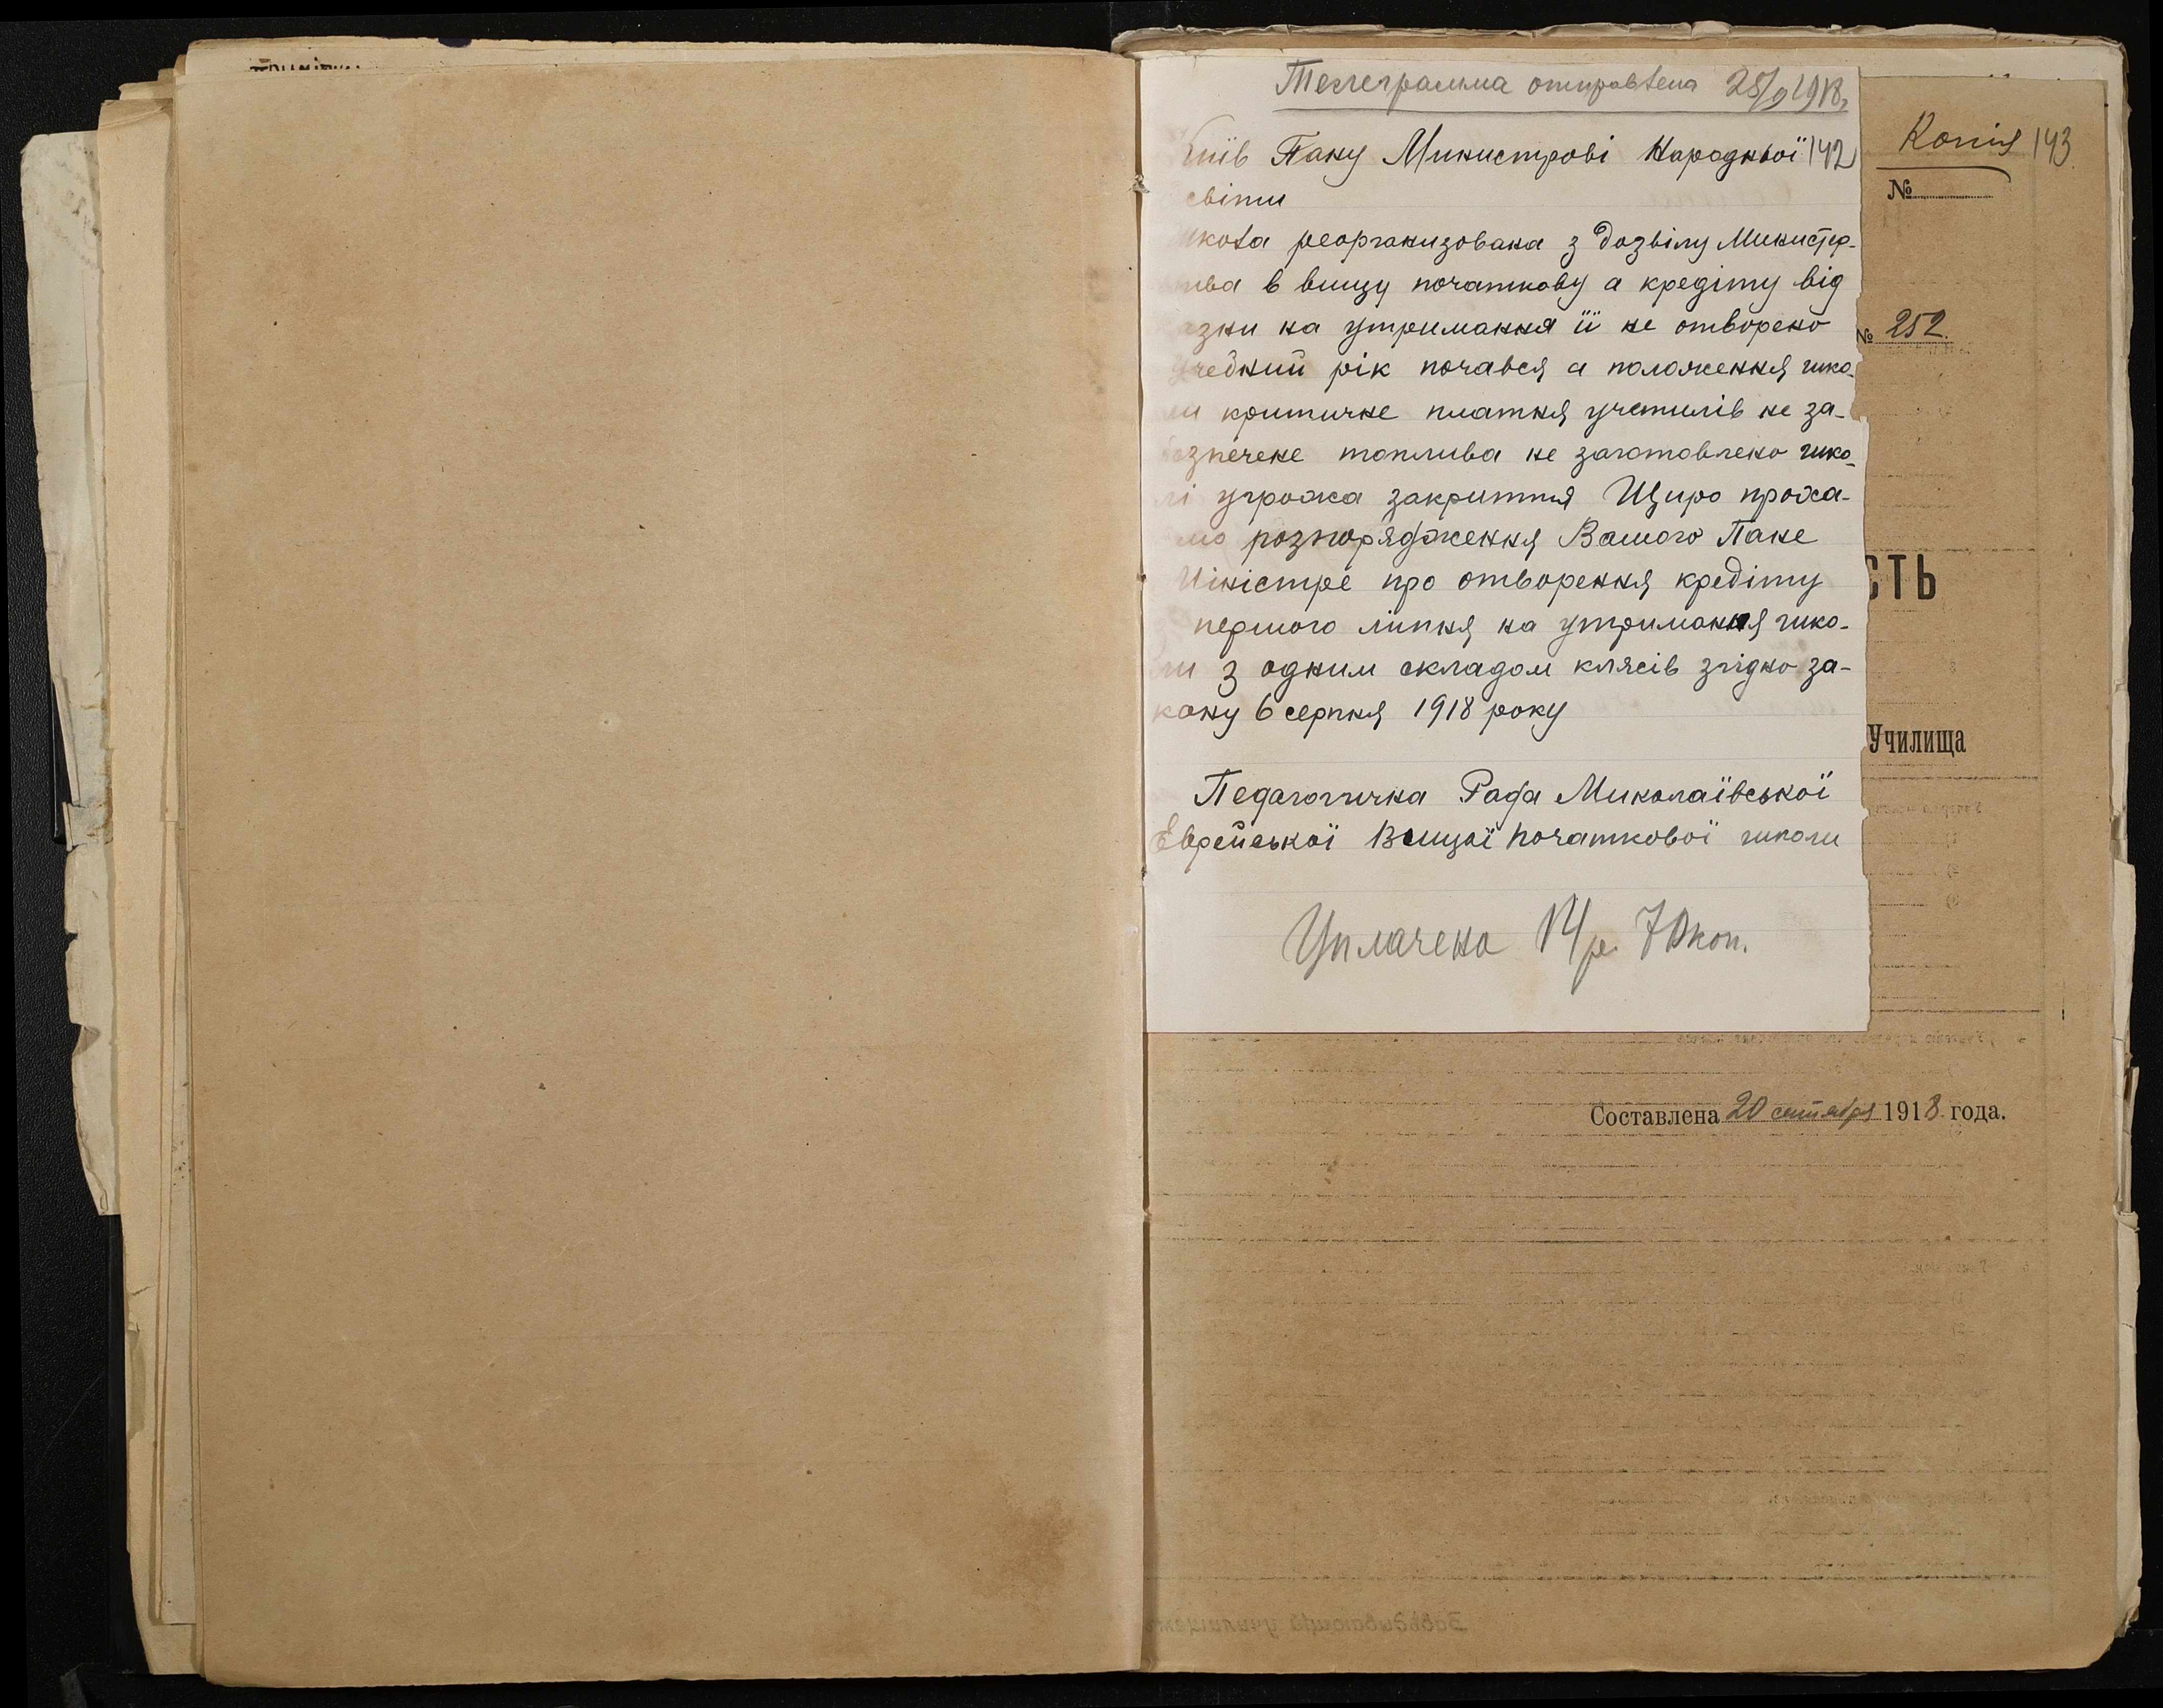 Телеграмма отправлена 28/9 1918 г.
Київ Пану Министрові Народньої 142
світи
школа реорганизована з дозвілу Министер-
тва в вищу початкову а кредіту від
азки на утримання її не отворено
Учебний рік почався а положення шко-
ли критичне платня учителів не за-
безпечене топлива не заготовлено шко-
лі угрожа закриття Щиро проха-
ємо розпорядження Вашого Пане
Міністре про отворення кредіту
першого липня на утримання шко-
ли з одним складом клясів згідно за-
кону 6 серпня 1918 року
Педагогична Рада Миколаївської
Еврейської Вищої початкової школи
Уплачено 14 р. 70 коп.
Копія 143
№
№ 252
СТЬ
Училища
Составлена 20 сентября 1918 года.